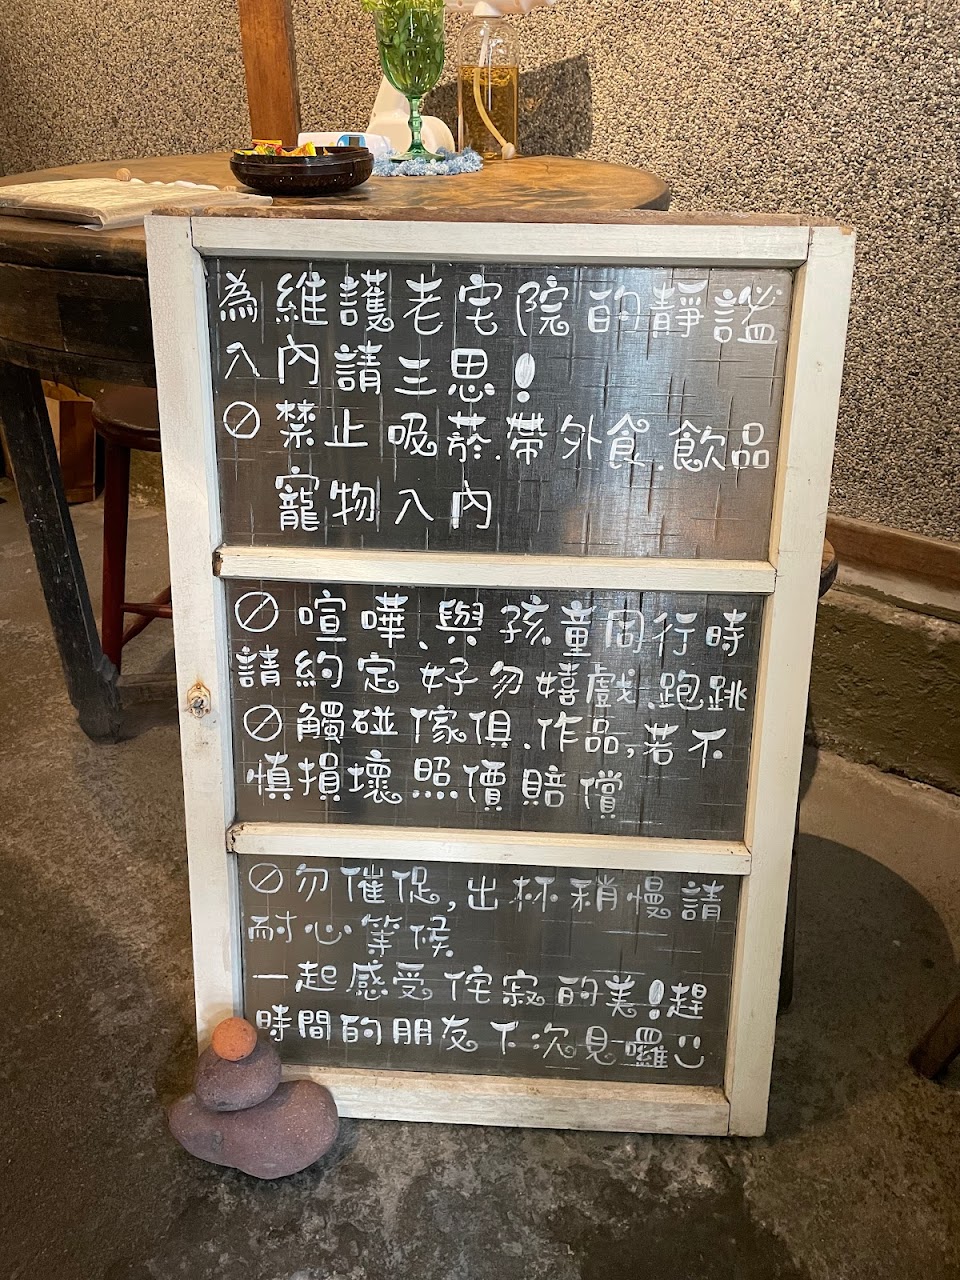 為維護老宅院的靜謐
入內請三思!
⊘禁止吸菸.帶外食.飲品
寵物入內
⊘喧嘩、與孩童同行時
請約定好勿嬉戲、跑跳
⊘觸碰傢俱、作品,若不
慎損壞照價賠償
⊘勿催促,出杯稍慢請
耐心等候
一起感受侘寂的美!趕
時間的朋友下次見囉☺